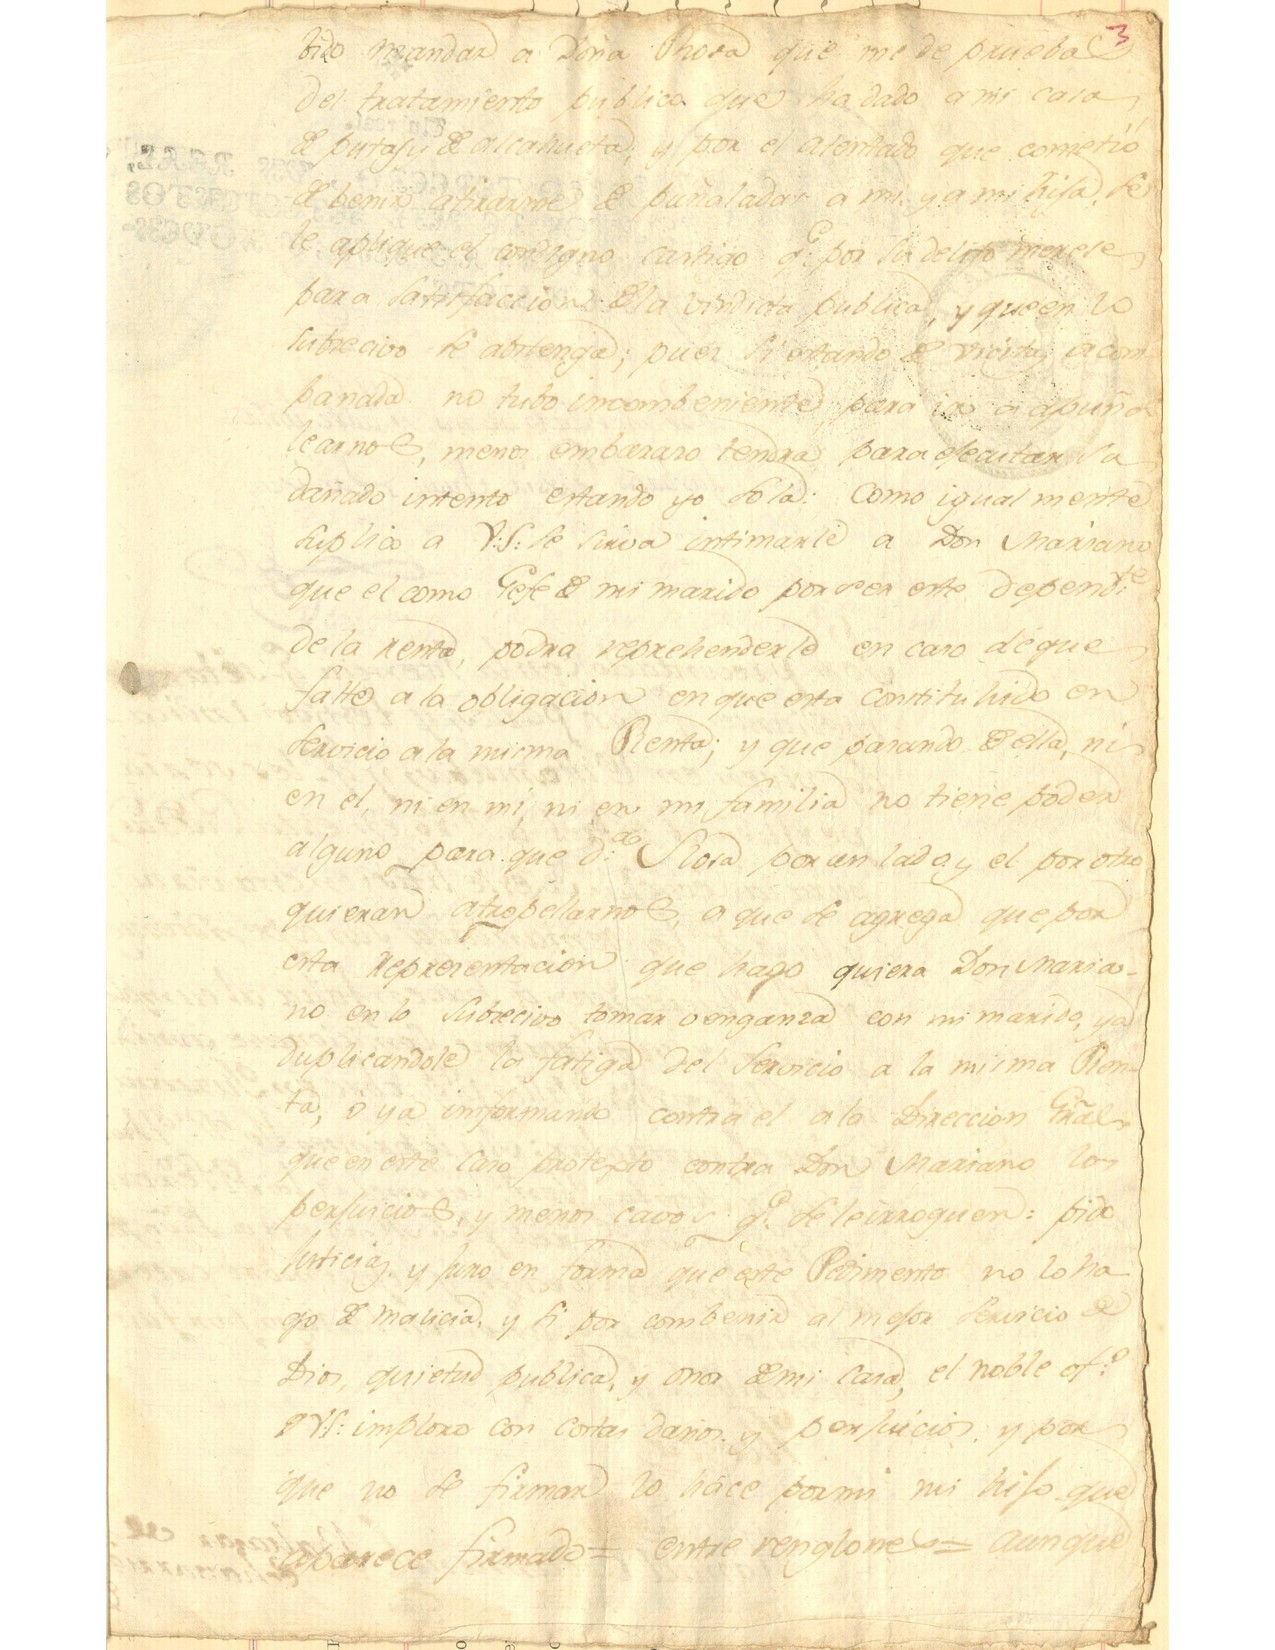 3
bido mandar a Doña Rosa que me de prueba
del tratamiento publico que ha dado a mi casa
de putas y de alcahueta, y por el atentado que cometió
de benir a tirarme de puñaladas a mi y a mi hija, se
le aplique el condigno castigo q.e por su delito merese
para satisfaccion de la vindicta publica, y que en lo
subcecivo se abstenga; pues si estando de vicita, acom
panada no tubo incombeniente para ir a apuña
learnos, menos embarazo tendra para ejecutar su
dañado intento estando yo sola: Como igualmente
suplico a V:S: se sirva intimarle a Don Mariano
que el como Gefe de mi marido por ser este depend.te
de la Renta, podra reprehenderle en caso de que
falte a la obligacion en que esta constituhido en
servicio a la misma Renta; y que pasando de ella, ni
en el, ni en mi, ni en mi familia no tiene poder
alguno para que d.a Rosa por un lado, y el por otro
quieran atropellarnos, a que se agrega que por
esta Representacion que hago quiera Don Maria-
no en lo subcecivo tomar venganza con mi marido, ya
duplicandole la fatiga del servicio a la misma Ren-
ta, ó ya imformando contra el a la Direccion Gral
que en este caso protexto contra Don Mariano los
perjuicios, y menos cavos q.e se le irroguen: pido
Justicia, y juro en forma que este Pedimento no lo ha
go de malicia, y si por combenir al mejor servicio de
Dios, quietud publica, y onor de mi Casa, el noble of.o
V:S: imploro con costas daños y perjuicios, y por
que no se firmar lo hace por mi mi hijo que
aparece firmado = entre renglones = aunque